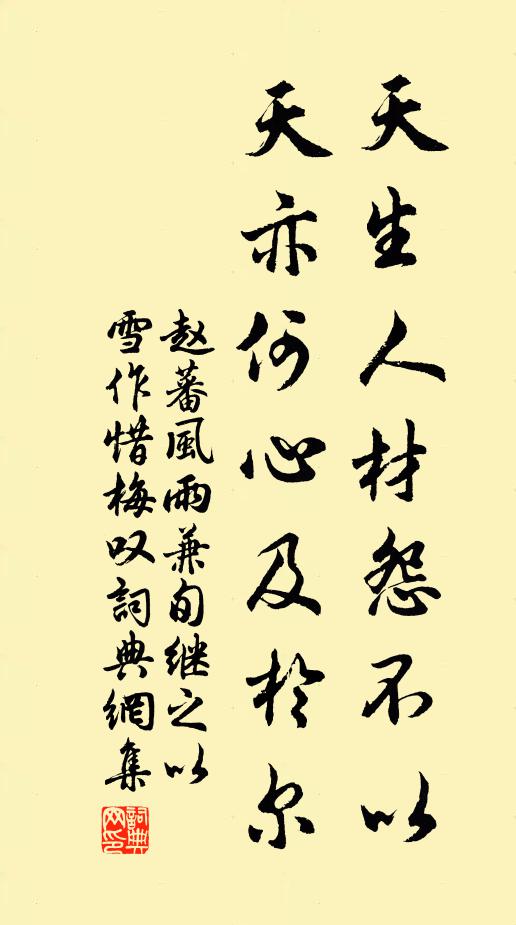 天生人材怨不以
天亦何心及於尔
赵蕃風雨兼旬继之以
雪作惜梅叹詞典網集
詞典網印